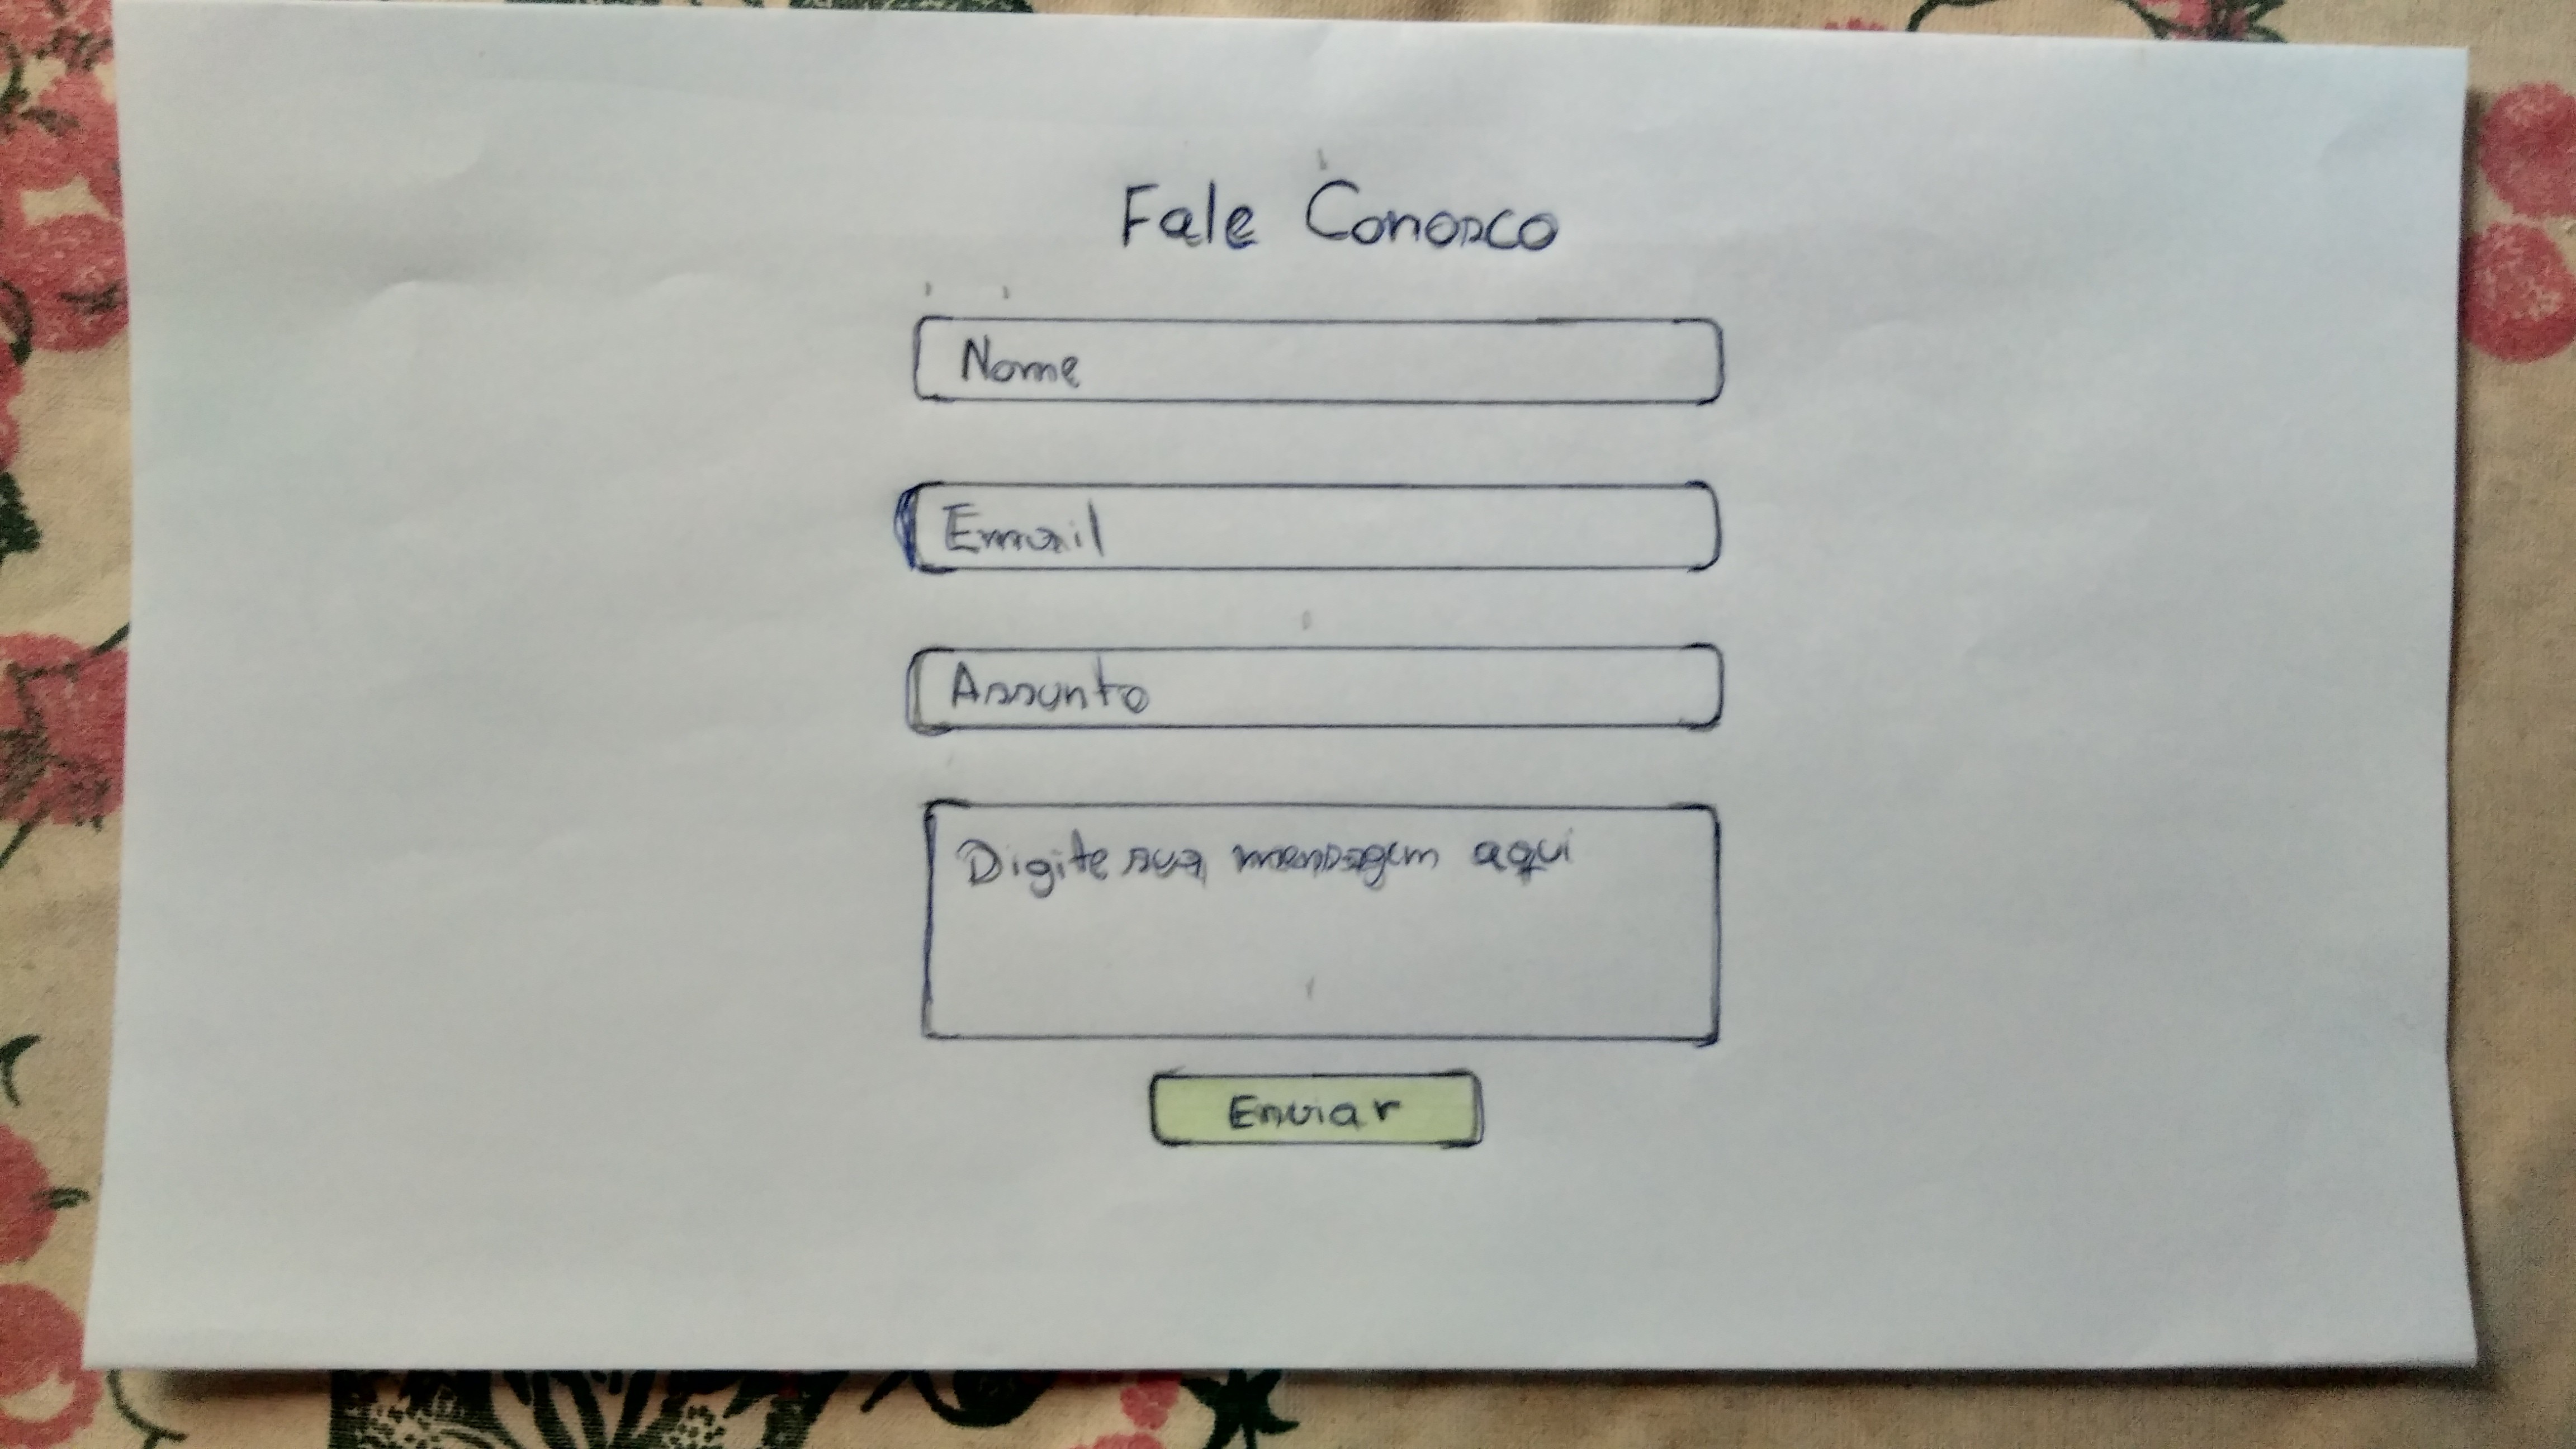 Fale Conosco
Nome
Email
Assunto
Digite sua mensagem aqui
Enviar